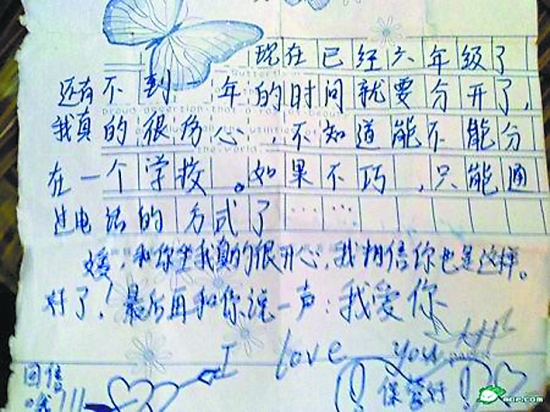 现在已经六年级了
还有不到一年的时间就要分开了,
我真的很伤心,不知道能不能分
在一个学校。如果不巧,只能通
过电话的方式了……
和你坐我真的很开心,我相信你也是这样。
好了!最后再和你说一声:我爱你
I love you
回信
保管好!
mop.com